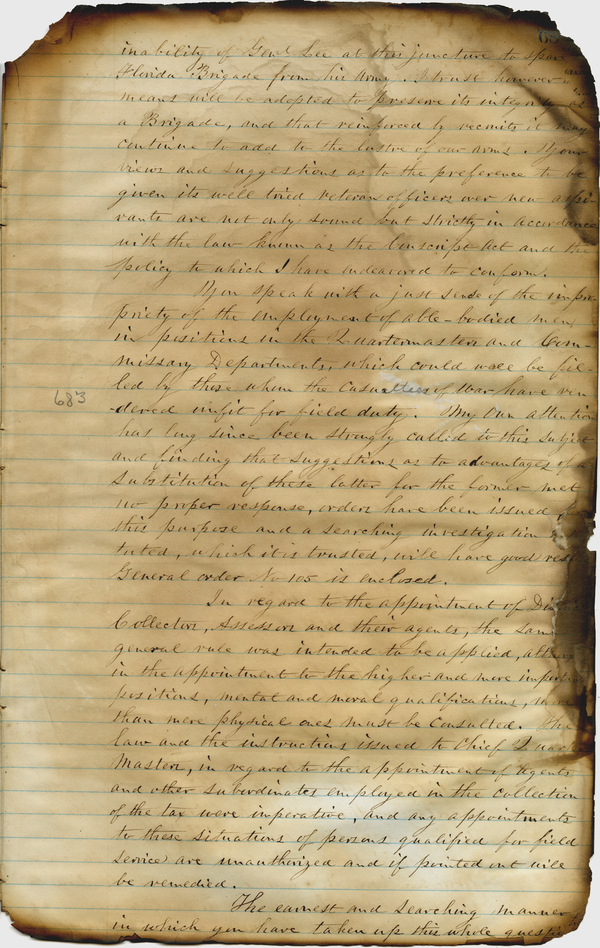 inability of Genl Lee at this juncture to spar
Florida Brigade from his Army. I trust however
means will be adopted to preserve its integrity as
a Brigade, and that reinforced by recruits it may
continue to add to the lustre of our arms. Your
views and suggestions as to the preference to be
given its well tried veteran officers over new aspi-
rants are not only sound but strictly in accordance
with the law known as the Conscript Act and the
policy to which I have endeavored to conform.
You speak with a just sense of the impro-
priety of the employment of able-bodied men,
in positions in the Quartermasters and Com-
missary Departments, which could well be fil-
led by those whom the casualties of War have ren
dered unfit for field duty. My own attention
683
has long since been strongly called to this subject
and finding that suggestions as to advantages of a
substitution of these latter for the former met
no proper response, orders have been issued for
this purpose and a searching investigation
tuted, which it is trusted, will have good res
General order No 105 is enclosed.
In regard to the appointment of Dis
Collectors, Assessors and their agents, the sam
general rule was intended to be applied, altho
in the appointment to the higher and more import
positions, mental and moral qualifications, more
than mere physical ones must be consulted. The
law and the instructions issued to Chief Quar
Masters, in regard to the appointment of Agents
and other subordinates employed in the collection
of the tax were imperative, and any appointments
to these situations of persons qualified for field
service are unauthorized and if pointed out will
be remedied.
The earnest and searching manner
in which you have taken up this whole questi